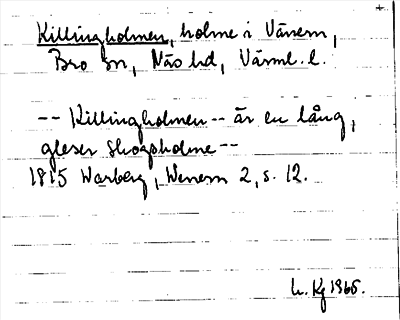 Killingholmen, holme i Vänern,
Bro sn, Näs hd, Värml. l.
-- Killingholmen -- är en lång,
gleser skogsholme --
1815 Warberg, Wenern 2, s. 12.
1965.